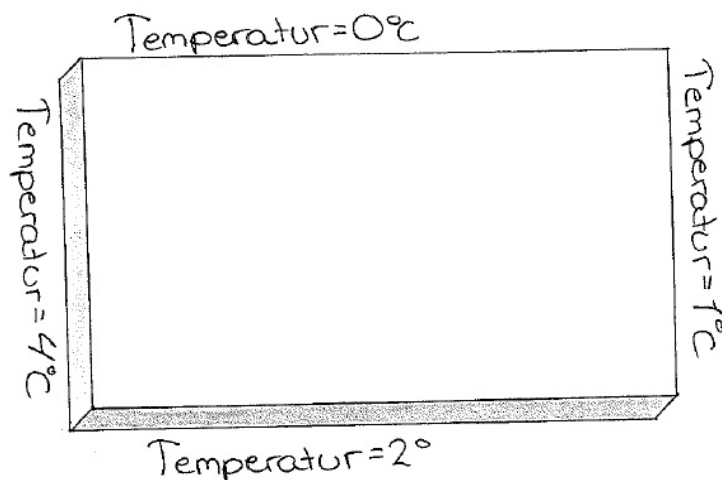 Temperatur=0°C
Temperatur=4°C
Temperatur=1°C
Temperatur=2°